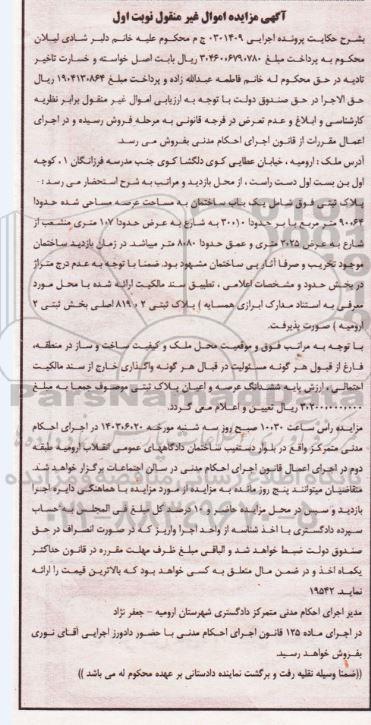 آگهی مزایده اموال غیر منقول نوبت اول
بشرح حکایت پرونده اجرایی ۰۳۰۱۴۰۹ ج م محکوم علیه خانم دلبر شادی لیلان
محکوم به پرداخت مبلغ ۳۰۴۶۰۰۶۷۹۰۷۸۰ ریال بابت اصل خواسته و خسارت تاخیر
تادیه در حق محکوم له خانم فاطمه عبداله زاده و پرداخت مبلغ ۱۹۰۴۱۳۰۸۶۴ ریال
حق الاجرا در حق صندوق دولت با توجه به ارزیابی اموال غیر منقول برابر نظریه
کارشناسی و ابلاغ و عدم تعرض در فرجه قانونی به مرحله فروش رسیده و در اجرای
اعمال مقررات از قانون اجرای احکام مدنی بفروش می رسد.
آدرس ملک : ارومیه ، خیابان عطایی کوی دلگشا کوی جنب مدرسه فرزانگان ۱، کوچه
اول بن بست اول دست راست ، از محل بازدید و مراتب به شرح استحضار می رسد :
پلاک ثبتی فوق شامل یک باب ساختمان به مساحت عرصه مساحی شده حدودا
۹۰۰۶۴ متر مربع با بر حدودا ۳۰۰۱۰ به شارع به عرض حدودا ۱۰۷ متری منشعب از
شارع به عرض ۳۰۲۵ متری و عمق حدودا ۸۰۸۰ متر میباشد. در زمان بازدید ساختمان
موجود تخریب و صرفا آثار پی ساختمان مشهود بود. ضمنا با توجه به عدم درج متراژ
در بخش حدود و مشخصات اعلامی ، تطبیق سند مالکیت ارائه شده با محل مورد
معرفی به استناد مدارک ابرازی همسایه ) پلاک ثبتی ۲ ، ۸۱۹ اصلی بخش ثبتی ۲
ارومیه ) صورت پذیرفت.
با توجه به مراتب فوق و موقعیت محل ملک و کیفیت ساخت و ساز در منطقه،
فارغ از قبول هر گونه مسئولیت در قبال هر گونه واگذاری خارج از سند مالکیت
احتمالی ، ارزش پایه ششدانگ عرصه و اعیان پلاک ثبتی موصوف جمعا به مبلغ
ریال تعیین و اعلام می گردد.
مزایده رأس ساعت ۱۰۰۳۰ صبح روز سه شنبه مورخه ۱۴۰۳۰۶۰۲۰ در اجرای احکام
مدنی متمرکز واقع در بلوار دستغیب ساختمان دادگاههای عمومی انقلاب ارومیه طبقه
دوم در اجرای اعمال قانون اجرای احکام مدنی در سالن اجتماعات برگزار خواهد شد.
متقاضیان میتوانند پنج روز مانده به مزایده از مورد مزایده با هماهنگی دایره اجرا
بازدید و سپس در محل مزایده حاضر و ۱۰ درصد کل مبلغ فی المجلس به حساب
سپرده دادگستری با اخذ شناسه از واحد اجرا واریز که در صورت انصراف در حق
صندوق دولت ضبط خواهد شد و الباقی مبلغ ظرف مهلت مقرره در قانون حداکثر
یکماه اخذ و در ضمن مال متعلق به کسی خواهد بود که بالاترین قیمت را ارائه
نماید. ۱۹۵۴۲
مدیر اجرای احکام مدنی متمرکز دادگستری شهرستان ارومیه – جعفر نژاد
در اجرای ماده ۱۲۵ قانون اجرای احکام مدنی با حضور دادورز اجرایی آقای نوری
بفروش خواهد رسید.
((ضمنا وسیله نقلیه رفت و برگشت نماینده دادستانی بر عهده محکوم له می باشد ))